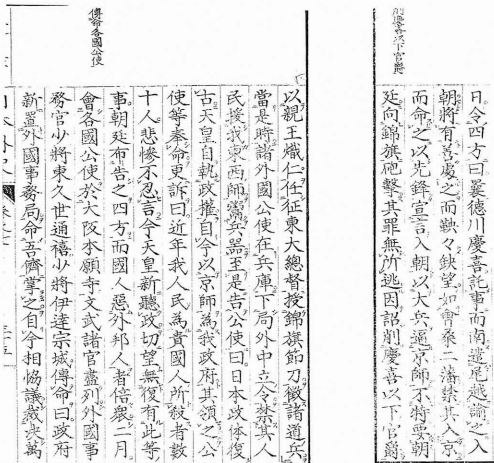 削慶喜以下官爵
日令四方曰曩德川慶喜託事而南遣尾越諭之入
朝將有喜處之而鞅々缺望如會桑二藩禁其入京
而命之以先鋒宣言入朝以大兵逼京師不特要朝
廷向錦旗砲擊其罪無所逃因詔削慶喜以下官爵
傳命各國公使
以親王熾仁任征東大總督授錦旗節刀徵諸道兵
當是時諸外國公使在兵庫下局外中立令禁其人
民援我東西師鬻兵器至是告公使曰日本政体復
古天皇自執政權自今以京師為我政府其領之公
使等奉命更訴曰近年我人民為貴國人所殺者數
十人悲慘不忍言今天皇新聽政切望無復有此等
事朝廷布告之四方而國人惡外邦人者倍衆二月
會各國公使於大阪本願寺文武諸官盡列外國事
務官少將東久世通禧少將伊達宗城傳命曰政府
新置外國事務局命吾儕掌之自今相恊議裁決萬